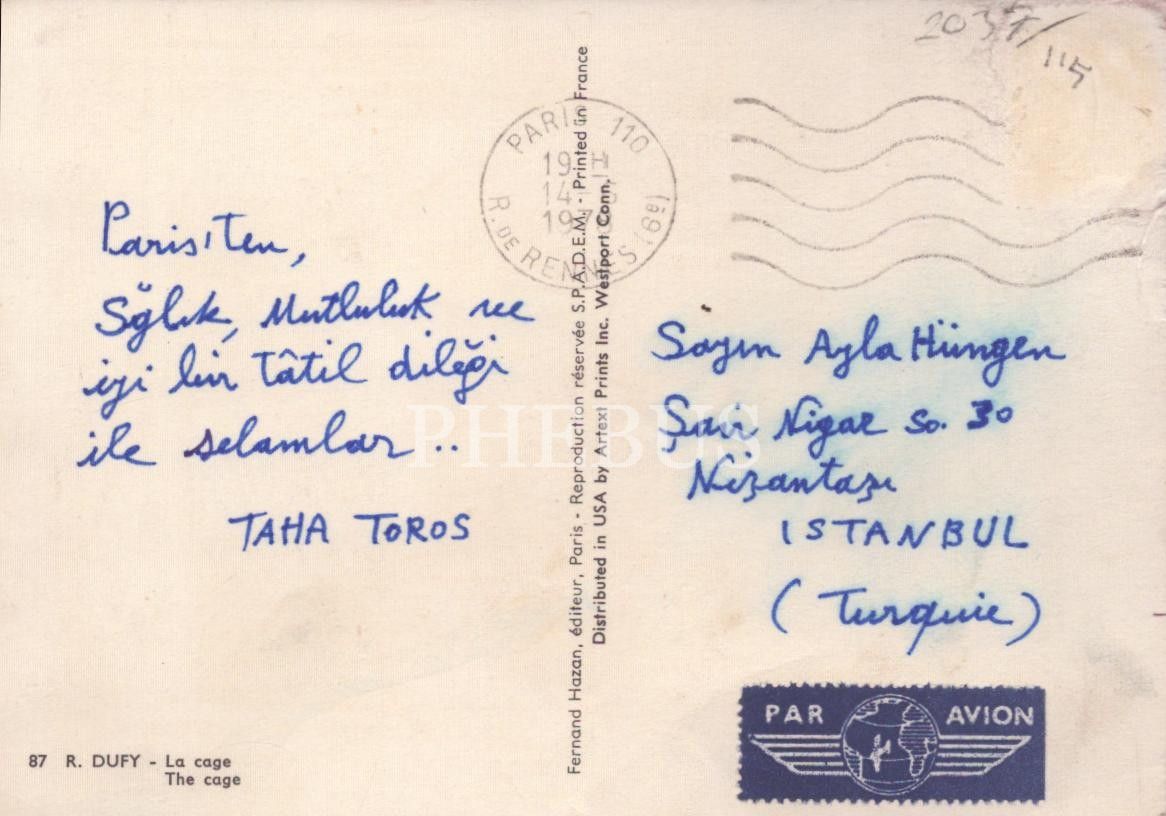 2037/115
PARIS 110
19 H
14
197
R. DE RENNES (6e)
Paris'ten,
Sağlık, Mutluluk ve
iyi bir tâtil dileği
ile selamlar..
TAHA TOROS
Fernand Hazan, éditeur, Paris - Reproduction réservée S.P.A.D.E.M. - Printed in France
Distributed in USA by Artext Prints Inc. Westport Conn.
Sayın Ayla Hüngen
Şair Nigar So. 30
Nişantaşı
ISTANBUL
(Turquie)
PHEBUS
PAR AVION
87 R. DUFY - La cage
The cage